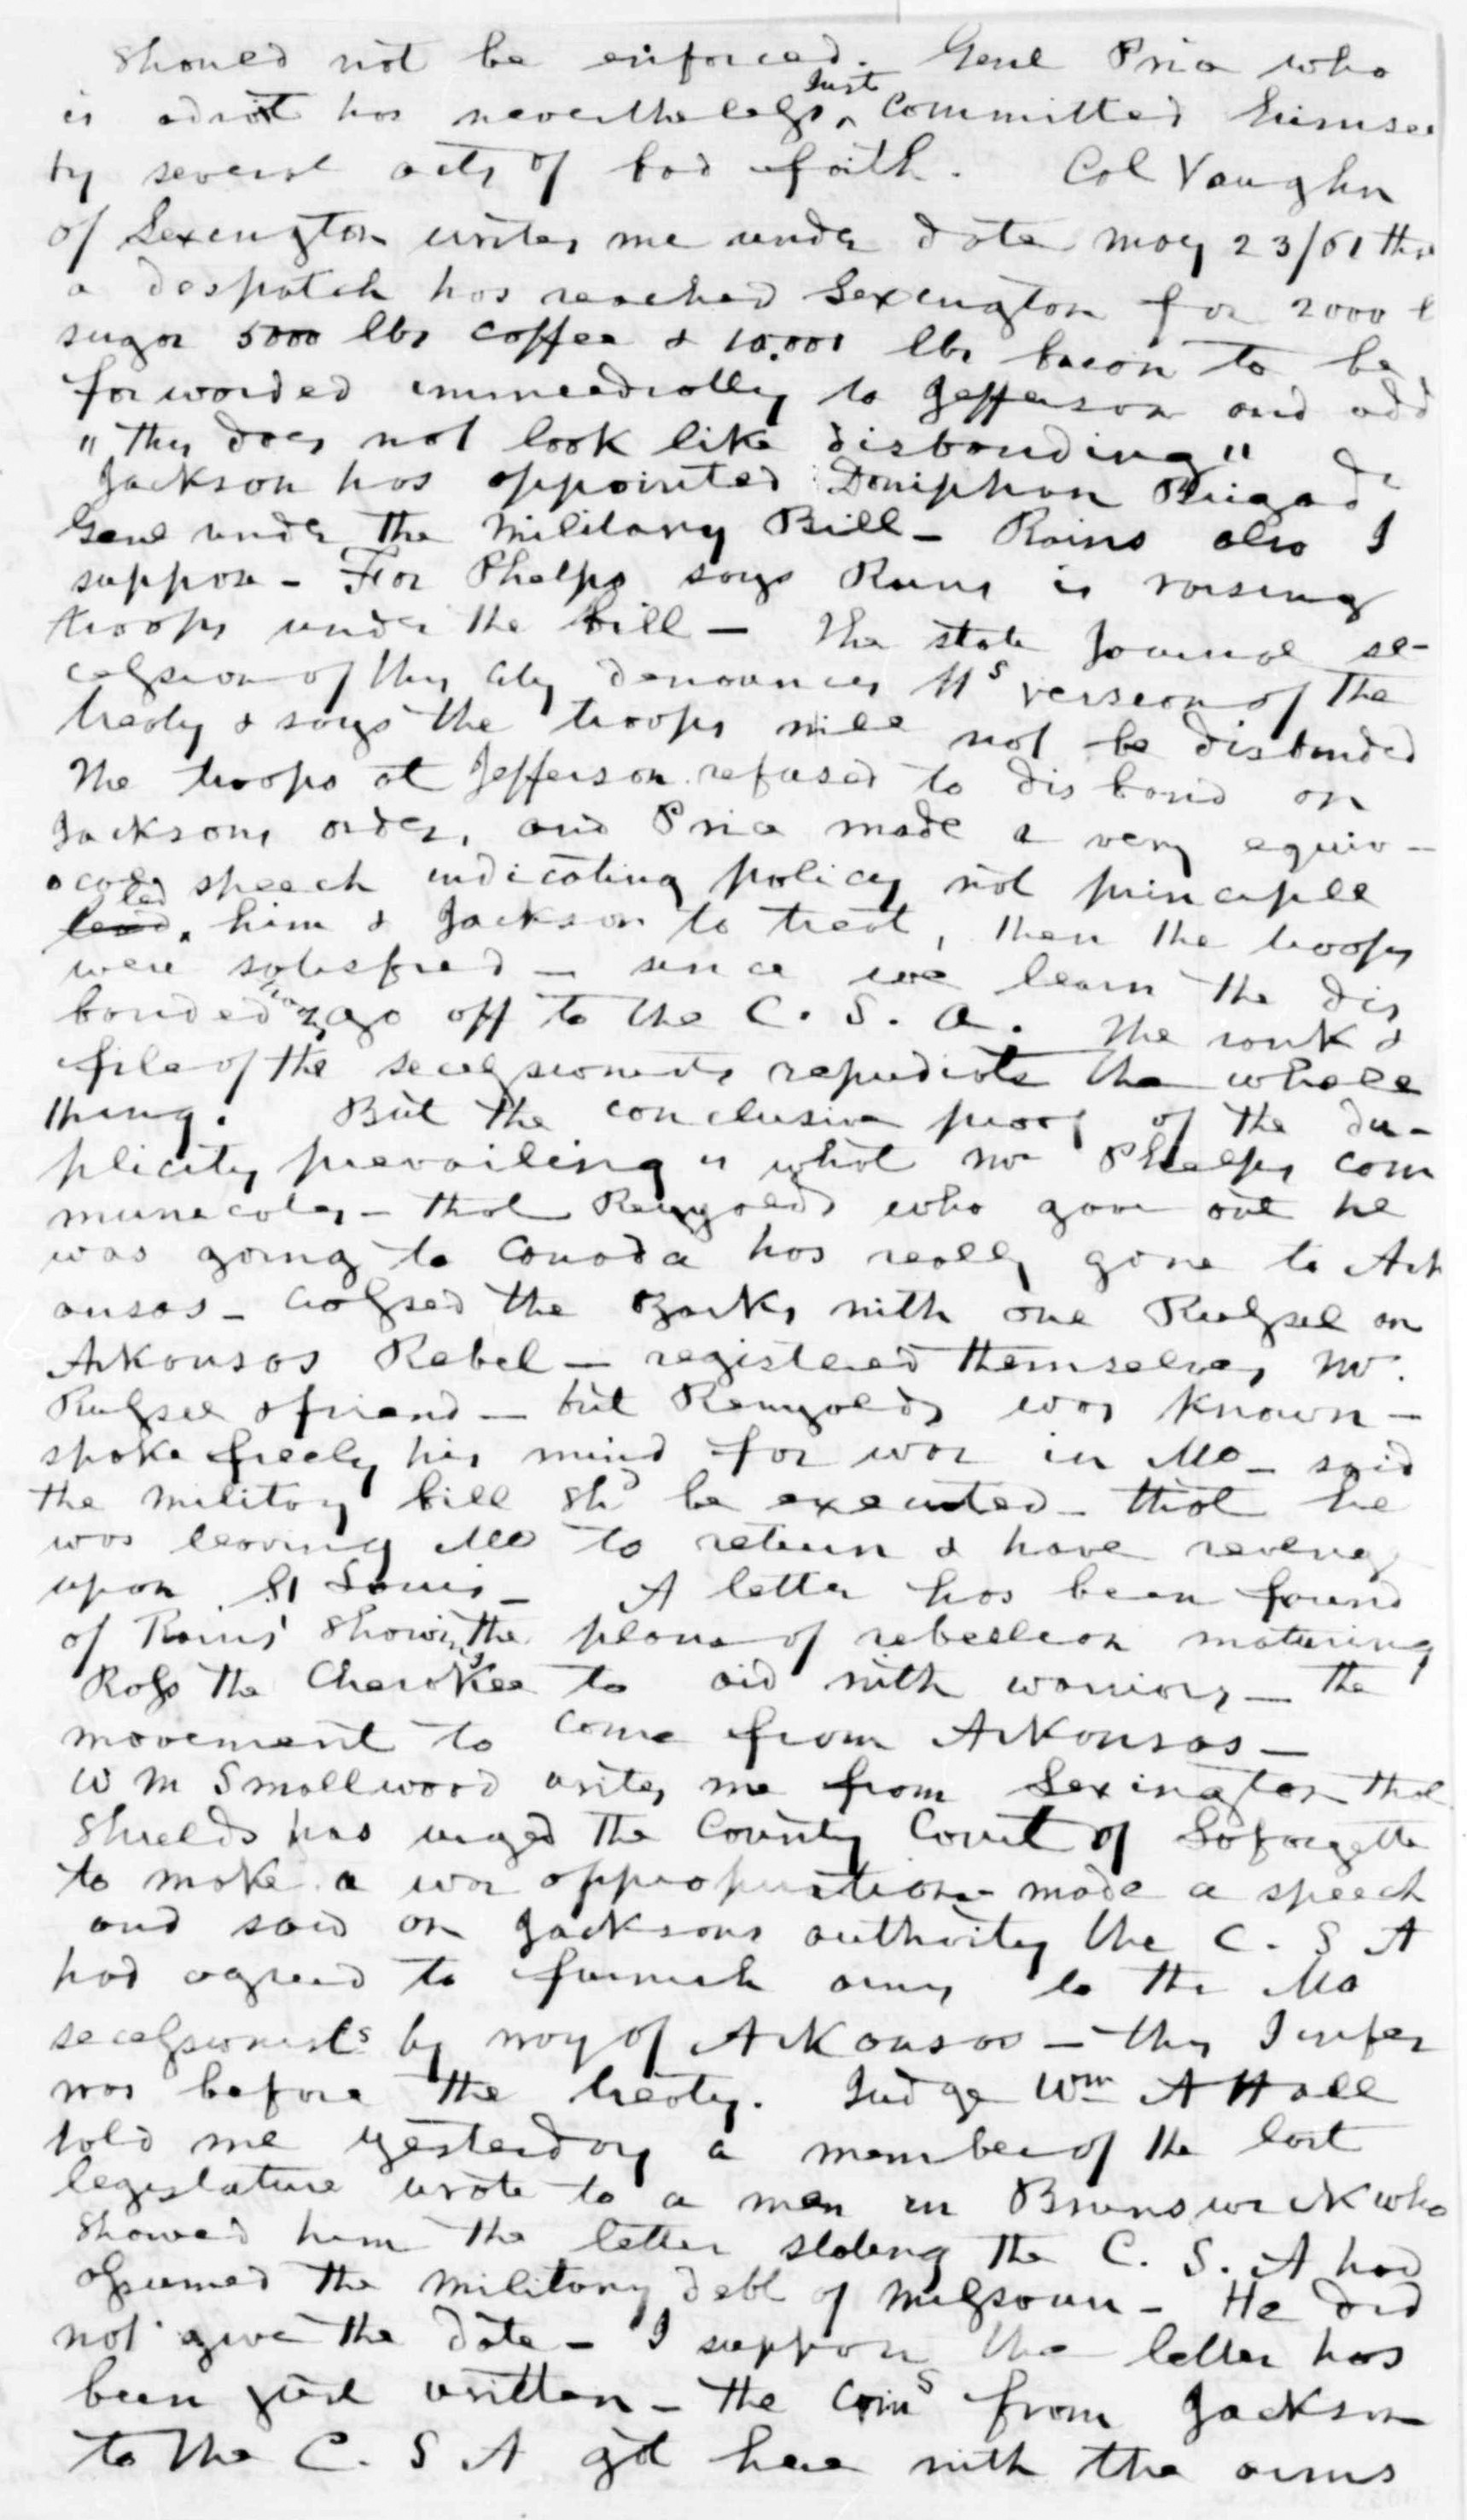 should not be enforced. Genl Price who
is adroit has nevertheless just committed himsel
by several acts of bad faith. Col Vaughn
of Lexington writes me under date May 23/61 tha
a despatch has reached Lexington for 2000 l
sugar 5000 lbs coffee & 10.000 lbs bacon to be
forwarded immediatley to Jefferson and add
"this does not look like disbanding"
Jackson has appointed Doniphan Brigade
Genl under the Military Bill - Rains also I
suppose - For Phelps says Rains is raising
troops under the bill - The state Journal se-
cession of this city denounces Hs version of the
treaty & says the troops will not be disbanded
The troops at Jefferson refused to disband on
Jacksons order, and Price made a very equiv-
ocal speech indicating policy not principle
led him & Jackson to treat, then the troops
were satisfied - since we learn the dis
banded go off to the C. S. A. The rank &
file of the secessionists repudiate the whole
thing. But the conclusive proof of the du-
plicity prevailing is what Mr Phelps com
municates - that Reynolds who gave out he
was going to Canada has really gone to Ark
ansas - crossed the Ozarks with one Russel an
Arkansas Rebel - registered themselves Mr.
Russel & friend - but Reynolds was known -
spoke freely his mind for war in Mo - said
the military bill shd be executed - that he
was leaving Mo to return & have reveng
upon St Louis - A letter has been found
of Rains' showing the plans of rebellion maturing
Ross the Cherokee to aid with warriors - the
movement to come from Arkansas -
Wm Smallwood writes me from Lexington that
Shields has urged the County Court of Lafayette
to make a war appropriation - made a speech
and said on Jacksons authority the C. S A
had agreed to furnish arms to the Mo
secessionists by way of Arkansas - this I infer
was before the treaty. Judge Wm A Hall
told me yesterday a member of the last
legislature wrote to a man in Brunswick who
showed him the letter stating the C. S. A had
assumed the military debt of Missouri - He did
not give the date - I suppose the letter has
been just written - the Coms from Jackson
to the C. S A got here with the arms